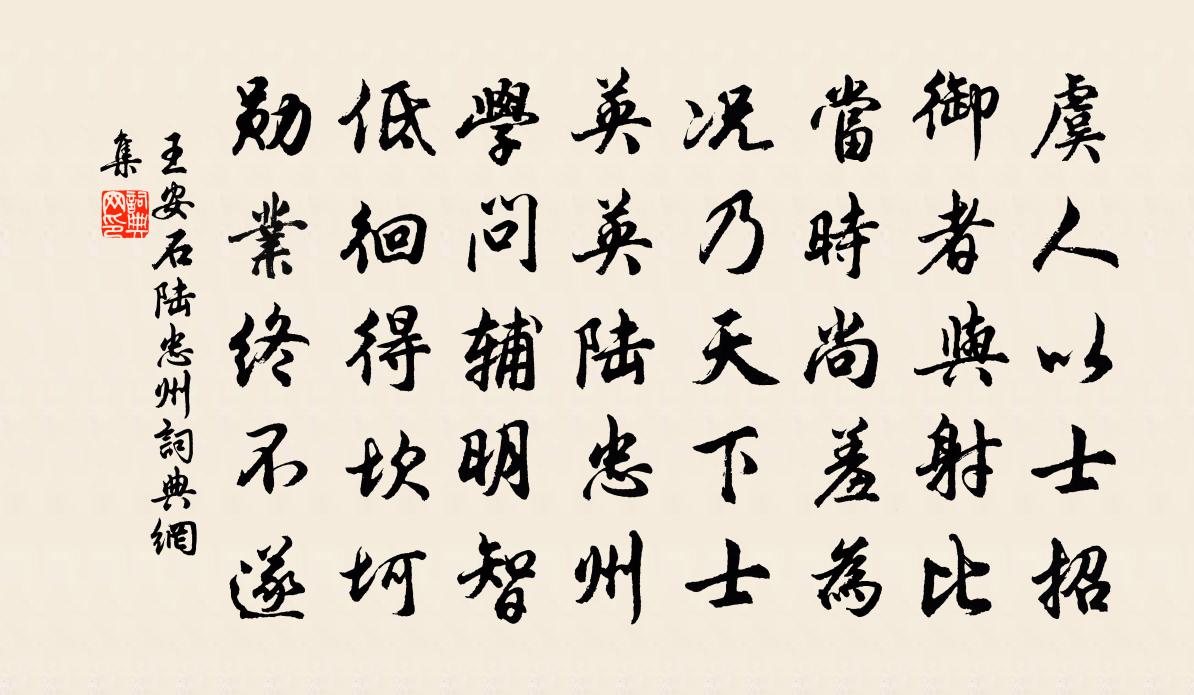 虞人以士招
御者與射比
當時尚羞為
况乃天下士
英英陸忠州
學問輔明智
低徊得坎坷
勋業終不遂
王安石陸忠州詞典網
集
詞典網印